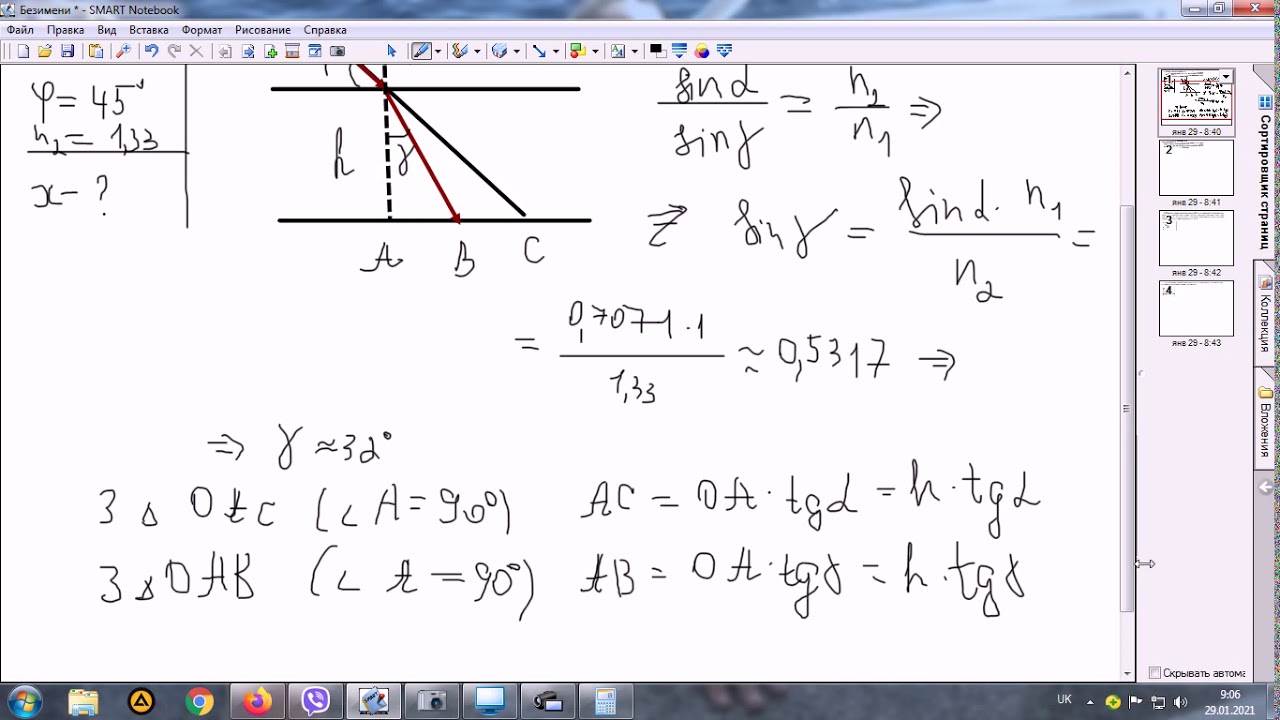 Безимени * - SMART Notebook
Файл Правка Вид Вставка Формат Рисование Справка
φ = 45°
n₂ = 1,33
x - ?
h
γ
A B C
sinα / sinγ = n₂ / n₁ ⇒
⇒ sinγ = sinα · n₁ / n₂ =
= 0,7071 · 1 / 1,33 ≈ 0,5317 ⇒
⇒ γ ≈ 32°
З Δ OAC (∠A = 90°) AC = OA · tgα = h · tgα
З Δ OAB (∠A = 90°) AB = OA · tgγ = h · tgγ
янв 29 - 8:40
2
янв 29 - 8:41
3
янв 29 - 8:42
4
янв 29 - 8:43
Сортировщик страниц
Коллекция
Вложения
Скрывать автома
UK
9:06
29.01.2021